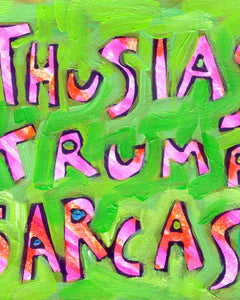 THUSIAS
TRUMP
SARCAS